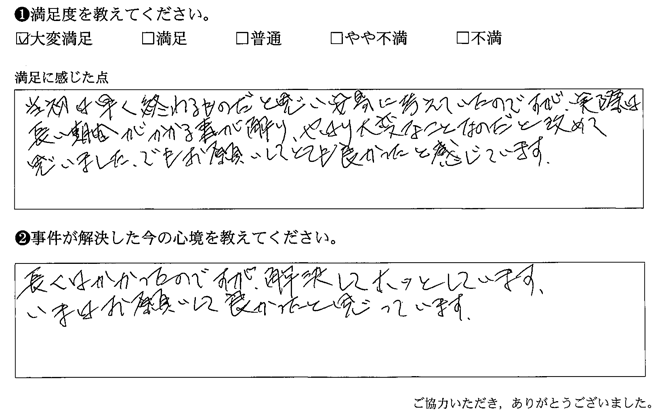 ❶満足度を教えてください。
☑大変満足 □満足 □普通 □やや不満 □不満
満足に感じた点
当初は早く終わるものだと思い安易に考えていたのですが、実際は
長い期間がかかる事が解り、やはり大変なことなのだと改めて
思いました、でもお願いしてとても良かったと感じています。
❷事件が解決した今の心境を教えてください。
長くはかかったのですが、解決してホッとしています、
いまはお願いして良かったと思っています。
ご協力いただき、ありがとうございました。